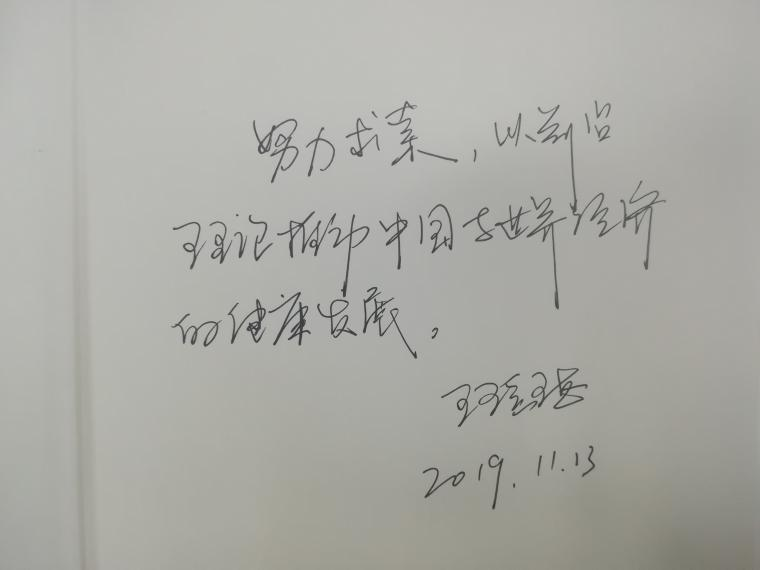 努力求索，以前沿
理论推动中国与世界经济
的健康发展。
2019.11.13